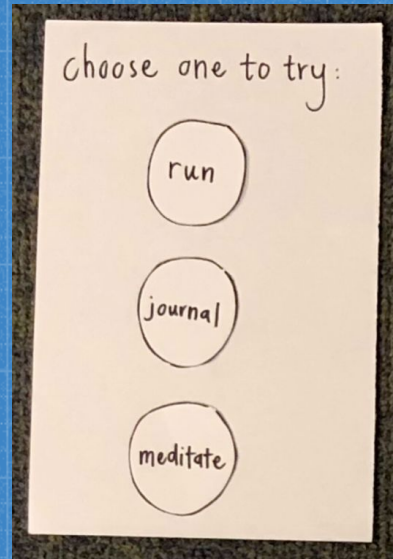 choose one to try:
run
journal
meditate